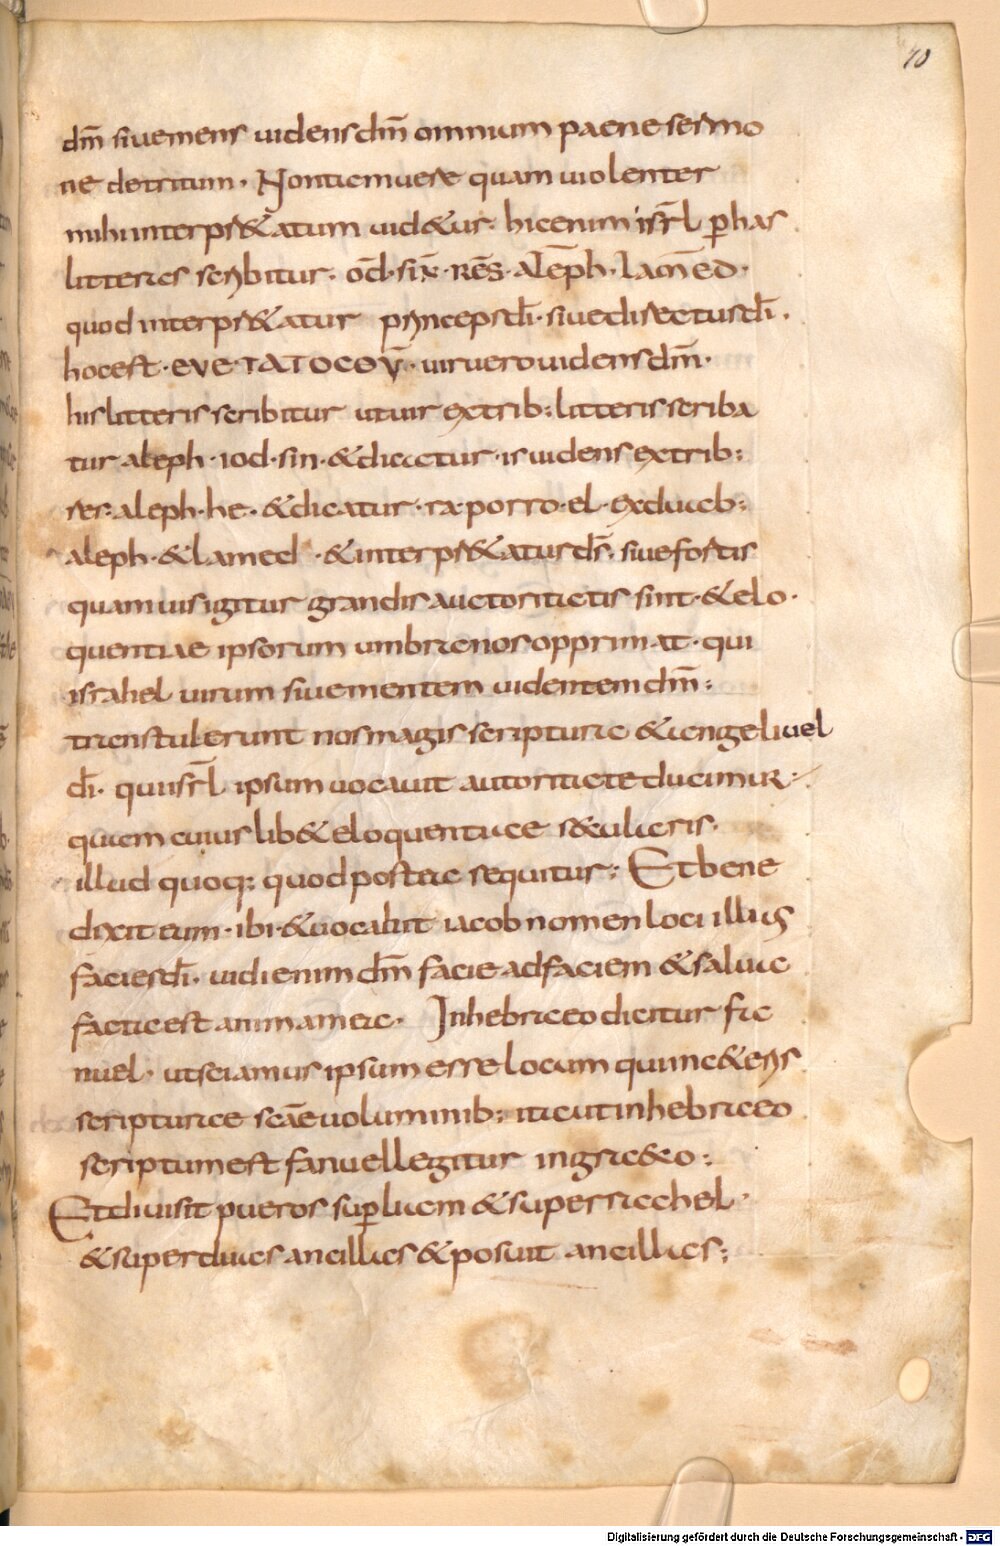 70
dm̄ siue mens uidens dm̄ omnium paene sermo
ne detritum. Non tiem uere quam uiolenter
mihi interpr&atum uid&ur. hic enim isrl̄ p̄ has
litteras scribitur. iod. sin. res. aleph. lamed.
quod interpr&atur princeps dī. siue directus dī.
hoc est. EVETATOCOV̄. uir uero uidens dm̄.
his litteris scribitur ut uir ex trib: litteris scriba
tur aleph. iod. sin. & dicatur. is uidens ex trib:
res. aleph. he. & dicatur. ra. porro. el. ex duab:
aleph. & lamed. & interpr&atur ds̄. siue fortis
quamuis igitur grandis auctoritatis sint. & elo.
quentiae ipsorum umbra nos opprimat. qui
israhel uirum siue mentem uidentem dm̄:
transtulerunt nos magis scripturae & angeli uel
dī. qui isrl̄ ipsum uocauit autoritate ducimur:
quam cuiuslib& eloquentiae saecularis.
illud quoq: quod postea sequitur: Et bene
dixit eum. ibi. & uocabit iacob nomen loci illius
facies dī. uidi enim dm̄ facie ad faciem & salua
facta est anima mea. In hebraeo dicitur fa
nuel. ut sciamus ipsum esse locum qui in c&eris
scripturae scāe uoluminib: ita ut in hebraeo
scriptum est fanuel legitur in graeco:
Et diuisit pueros sup̄ liam & super rachel.
& super duas ancillas & posuit ancillas:
Digitalisierung gefördert durch die Deutsche Forschungsgemeinschaft - DFG